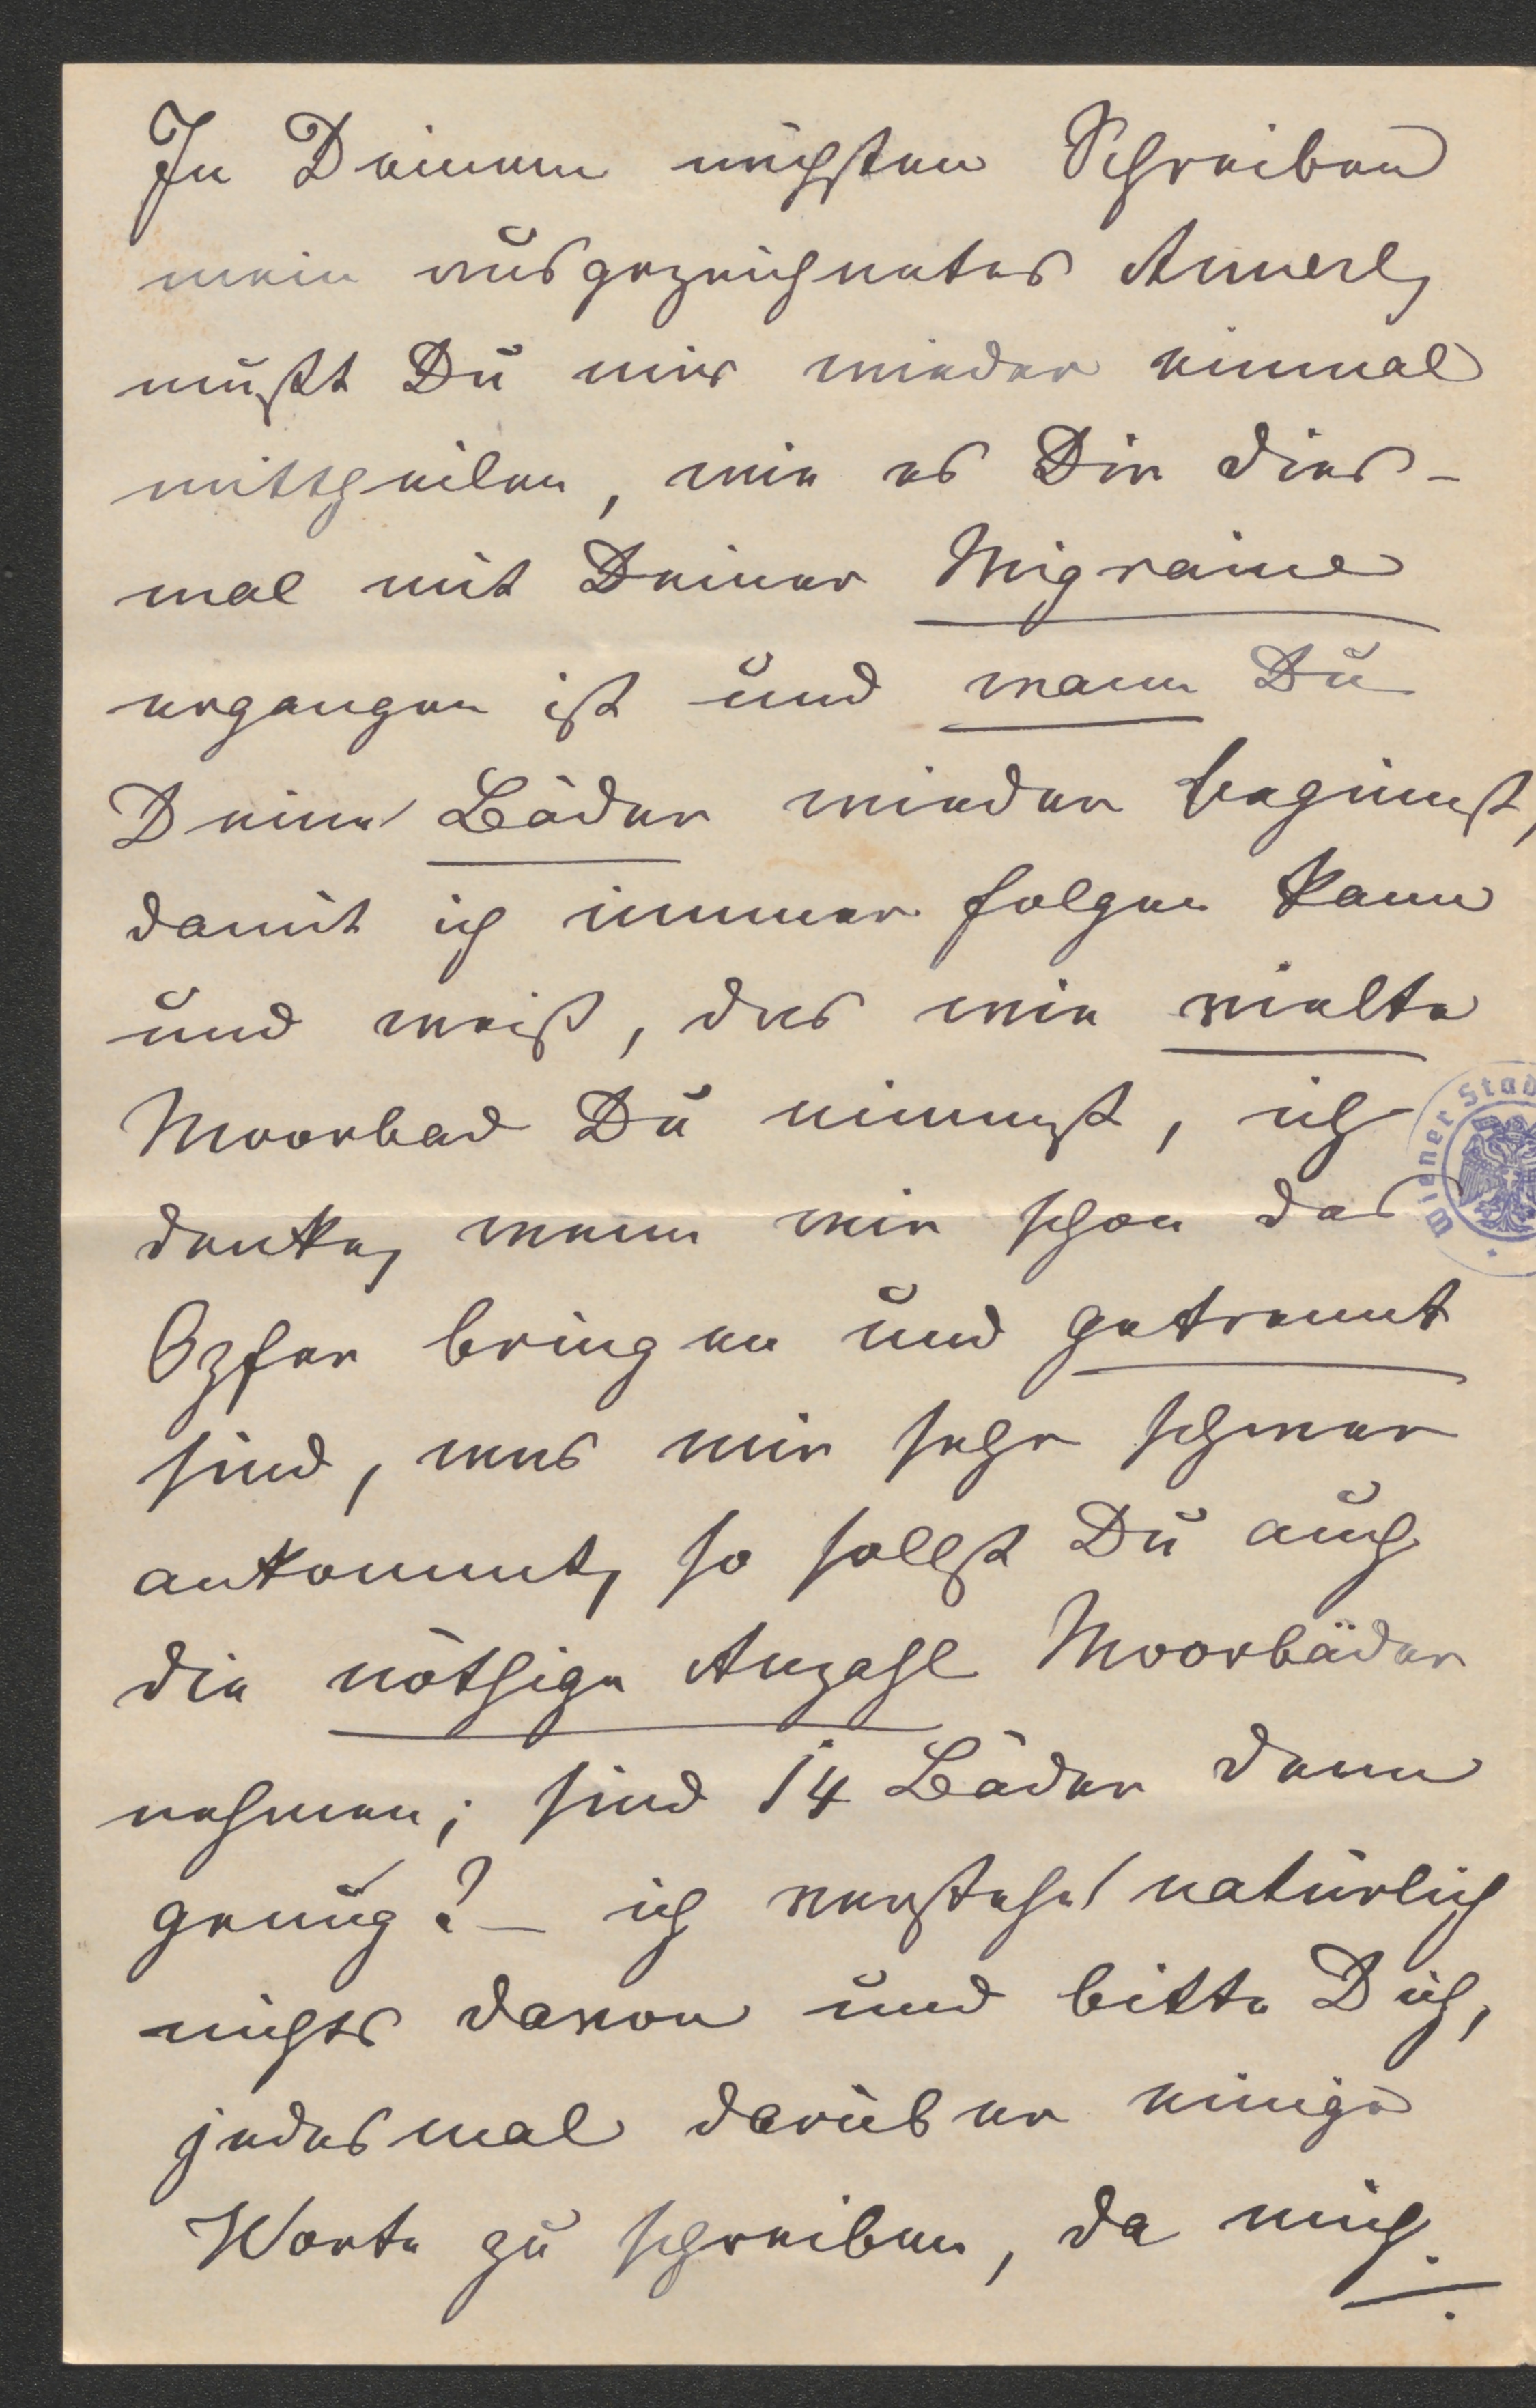 In Deinem nächsten Schreiben
mein ausgezeichnetes Annerl,
mußt Du mir wieder einmal
mittheilen, wie es Dir dies-
mal mit Deiner Migraine
ergangen ist und wann Du
Deine Bäder wieder beginnst,
damit ich immer folgen kann
und weiß, das wie vielte
Moorbad Du nimmst, ich
denke, wenn wir schon das
Opfer bringen und getrennt
sind, was mir sehr schwer
ankommt, so sollst Du auch
die nöthige Anzahl Moorbäder
nehmen; sind 14 Bäder denn
genug? – ich verstehe natürlich
nichts davon und bitte Dich,
jedesmal darüber einige
Worte zu schreiben, da mich
Wiener Stad